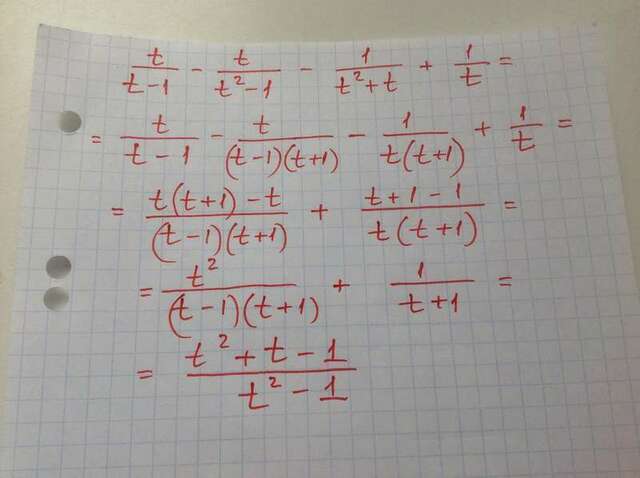 t/(t-1) - t/(t²-1) - 1/(t²+t) + 1/t =
= t/(t-1) - t/((t-1)(t+1)) - 1/(t(t+1)) + 1/t =
= (t(t+1)-t)/((t-1)(t+1)) + (t+1-1)/(t(t+1)) =
= t²/((t-1)(t+1)) + 1/(t+1) =
= (t²+t-1)/(t²-1)